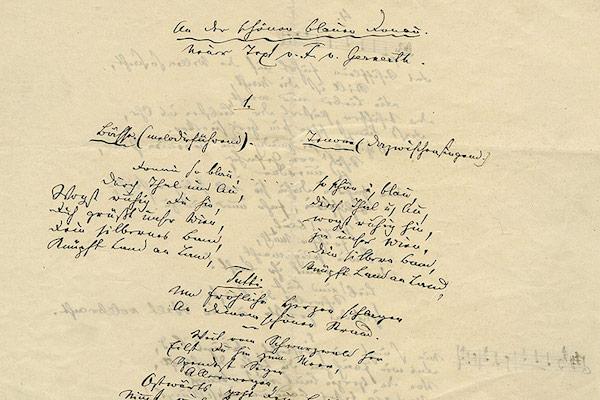 An der schönen blauen Donau.
Neuer Text v. F. v. Gernerth.
1.
Bässe (melodieführend).
Donau so blau,
durch Thal und Au,
Wogst ruhig du hin,
Dich grüßt unser Wien,
Dein silbernes Band,
Knüpft Land an Land,
Tenore (dazwischensingend.)
so schön u. blau,
durch Thal u. Au,
wogst ruhig hin,
Wien,
Dein silbern Band,
Knüpft Land an Land,
Tutti
Und fröhliche Herzen schlagen
An deinem schönen Strand.
Weit vom Schwarzwald her
Eilst du hin zum Meer,
Spendest Segen
Allerwegen,
Ostwärts geht dein Lauf,